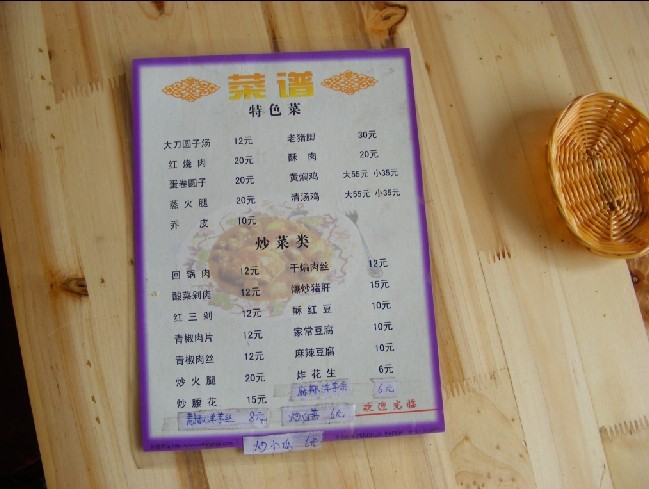 菜谱
特色菜
大刀圆子汤 12元 老猪脚 30元
红烧肉 20元 酥肉 20元
蛋卷圆子 20元 黄焖鸡 大55元 小35元
蒸火腿 20元 清汤鸡 大55元 小35元
乔皮 10元
炒菜类
回锅肉 12元 干煸肉丝 12元
酸菜剁肉 12元 爆炒猪肝 15元
红三剁 12元 酥红豆 10元
青椒肉片 12元 家常豆腐 10元
青椒肉丝 12元 麻辣豆腐 10元
炒火腿 20元 炸花生 6元
炒腰花 15元 麻辣洋芋条 6元
青椒洋芋丝 8元 6元 欢迎光临
炒小瓜 6元